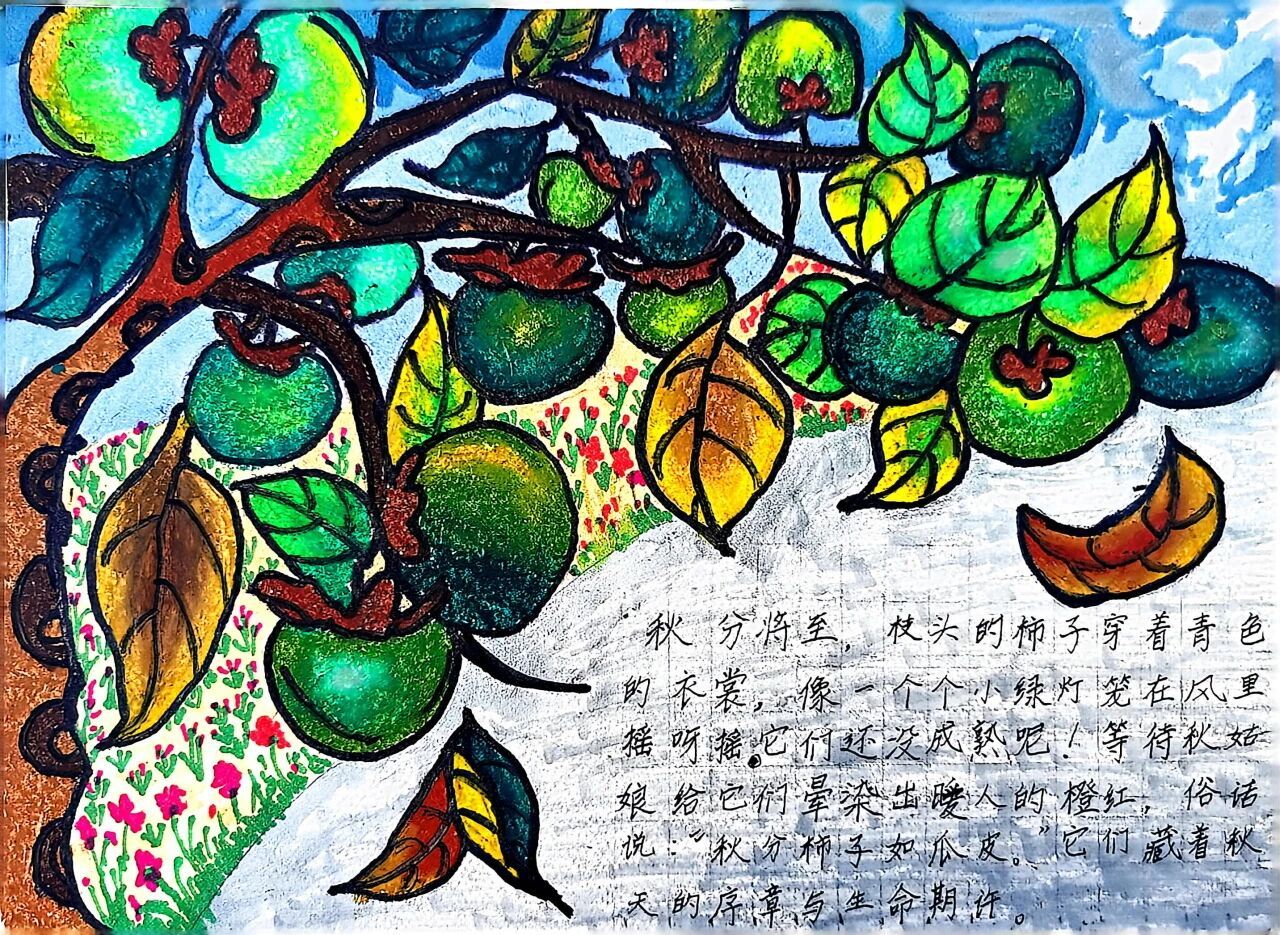 秋分将至，枝头的柿子穿着青色
的衣裳，像一个个小绿灯笼在风里
摇呀摇。它们还没成熟呢！等待秋姑
娘给它们晕染出暖人的橙红，俗话
说："秋分柿子如瓜皮。"它们藏着秋
天的序章与生命期许。